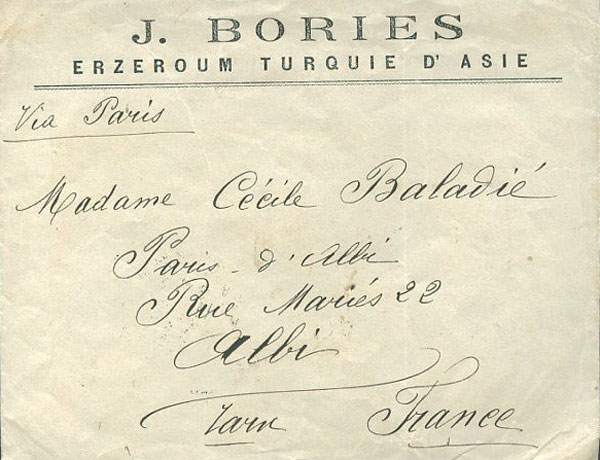 J. BORIES
ERZEROUM TURQUIE D' ASIE
Via Paris
Madame Cécile Baladié
Paris - d'Albi
Rue Mariés 22
Albi
Tarn France